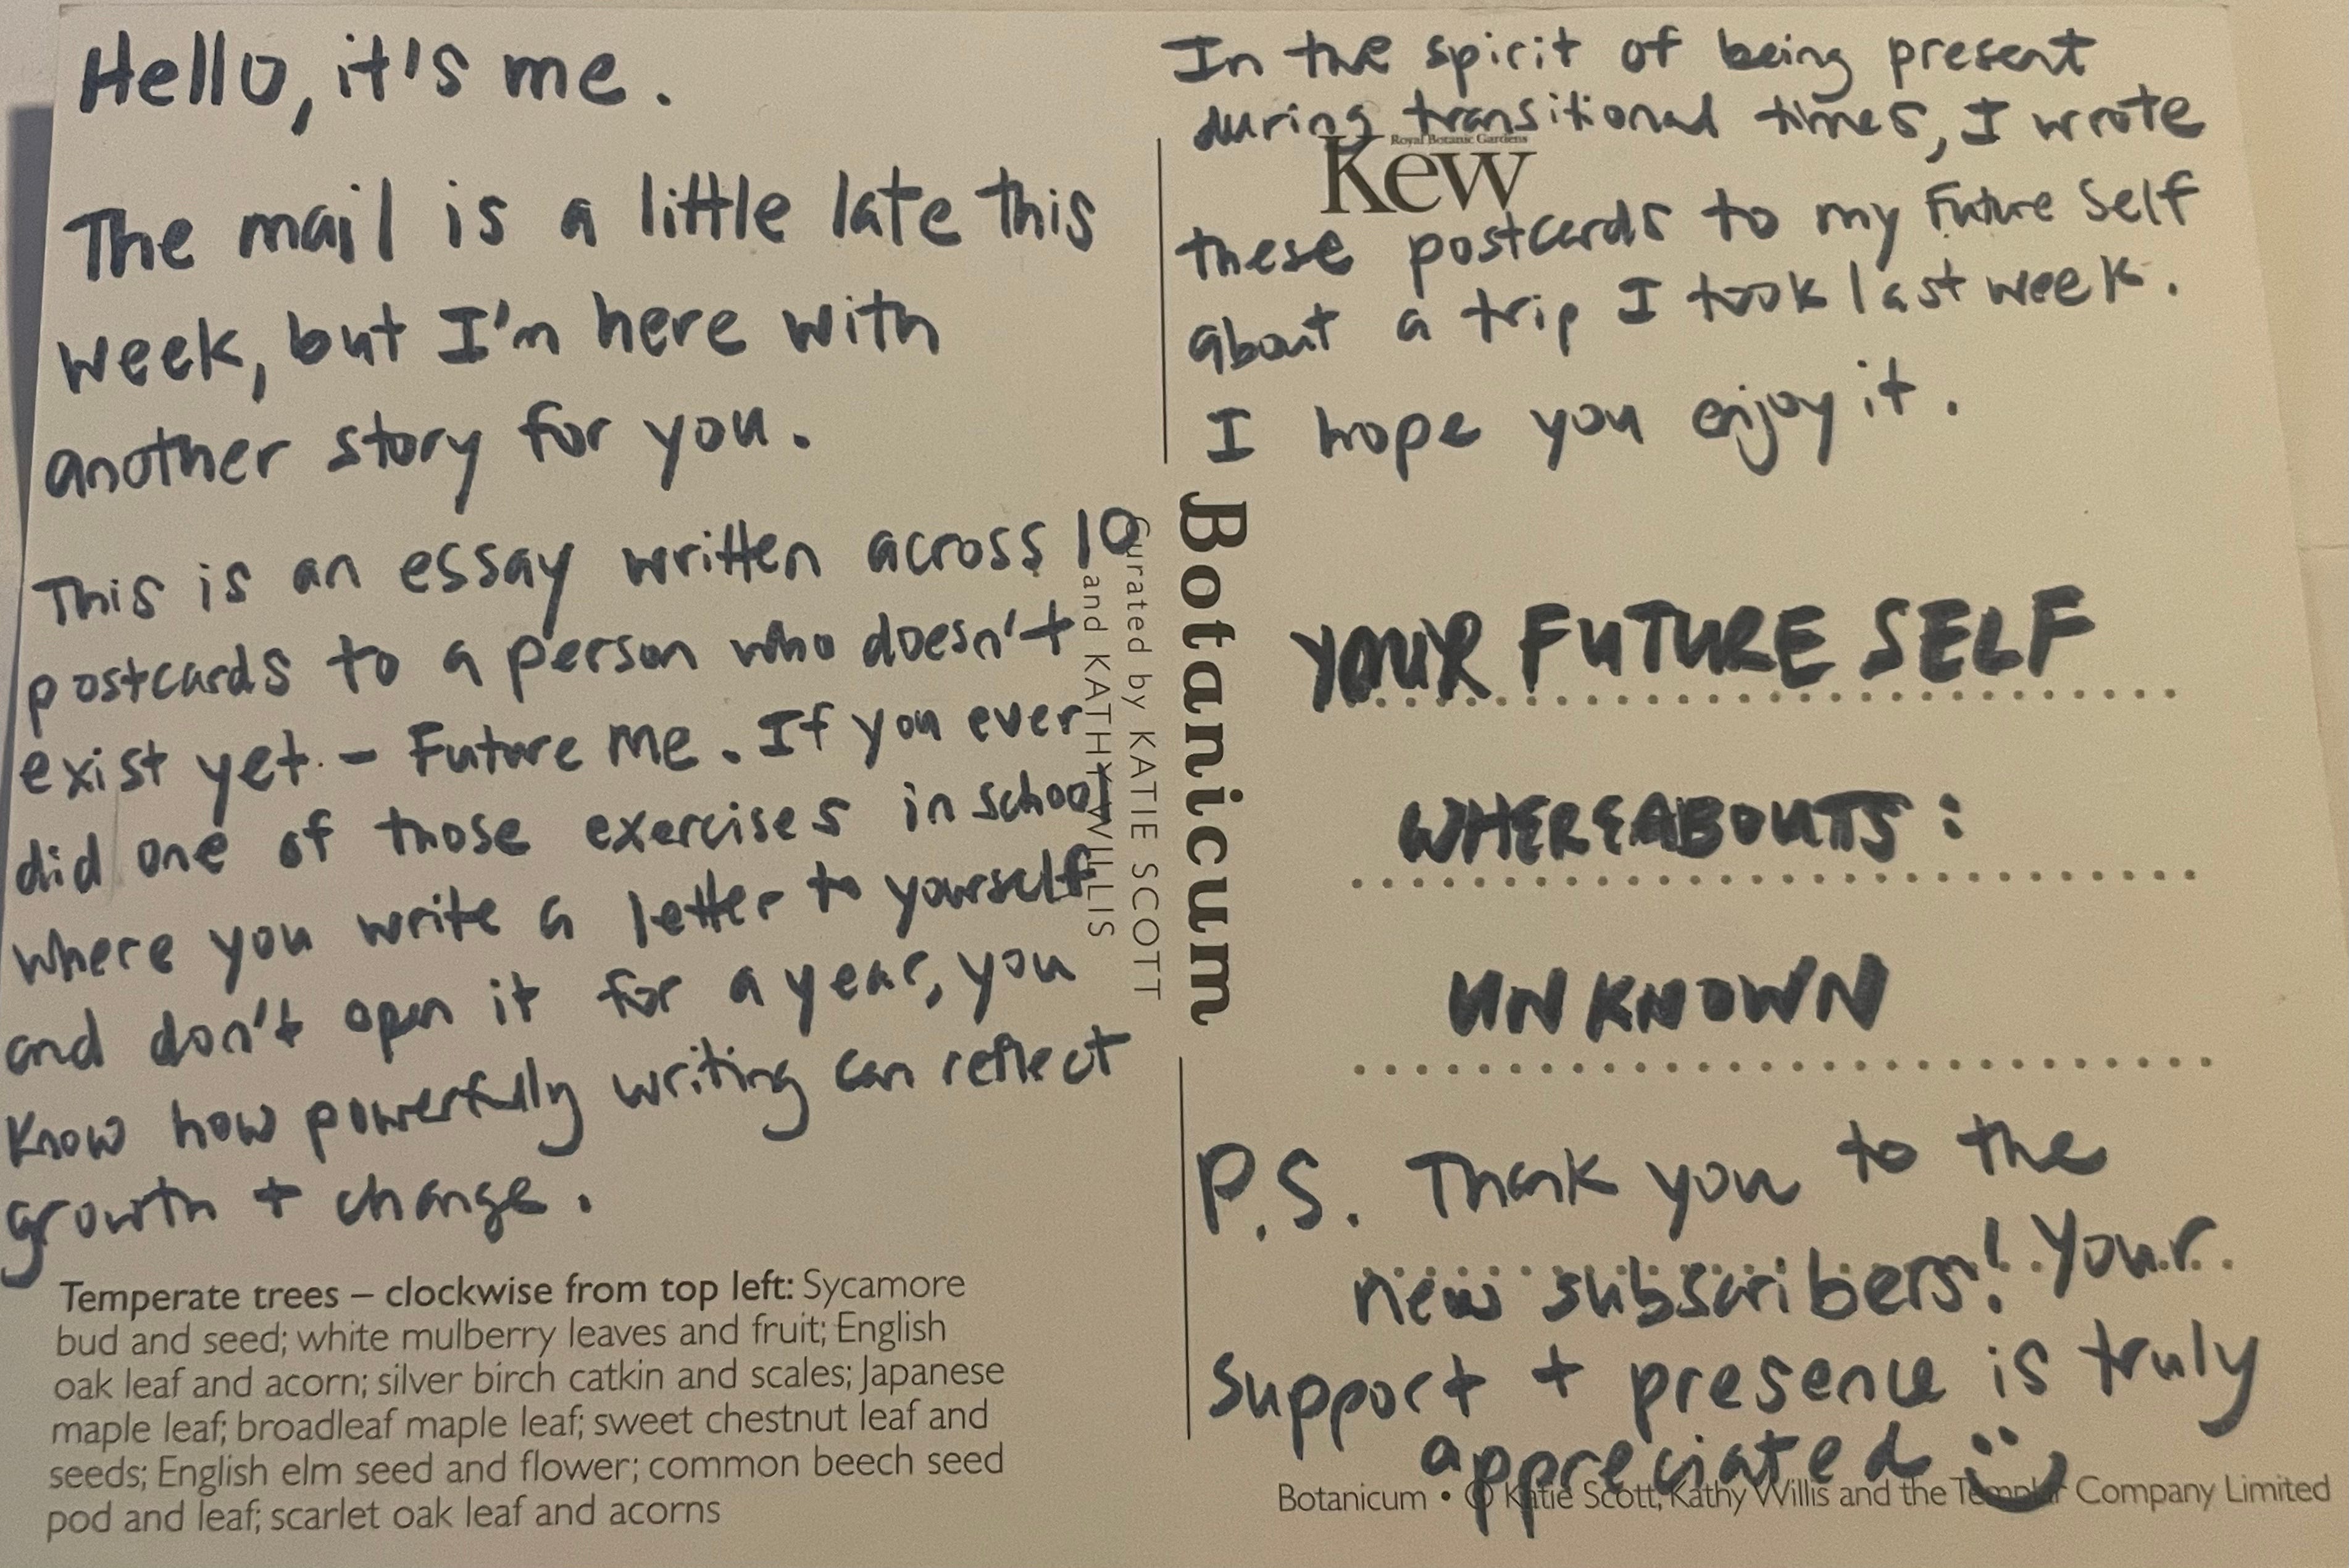 Hello, it's me.
The mail is a little late this
week, but I'm here with
another story for you.
This is an essay written across 10
postcards to a person who doesn't
exist yet - Future me. If you ever
did one of those exercises in school
where you write a letter to yourself
and don't open it for a year, you
know how powerfully writing can reflect
growth + change.
Temperate trees – clockwise from top left: Sycamore
bud and seed; white mulberry leaves and fruit; English
oak leaf and acorn; silver birch catkin and scales; Japanese
maple leaf; broadleaf maple leaf; sweet chestnut leaf and
seeds; English elm seed and flower; common beech seed
pod and leaf; scarlet oak leaf and acorns
Botanicum
Curated by KATIE SCOTT
and KATHY WILLIS
In the spirit of being present
during transitional times, I wrote
Royal Botanic Gardens
Kew
these postcards to my Future Self
about a trip I took last week.
I hope you enjoy it.
YOUR FUTURE SELF
WHEREABOUTS:
UNKNOWN
P.S. Thank you to the
new subscribers! Your
support + presence is truly
appreciated
Botanicum • © Katie Scott, Kathy Willis and the Templar Company Limited